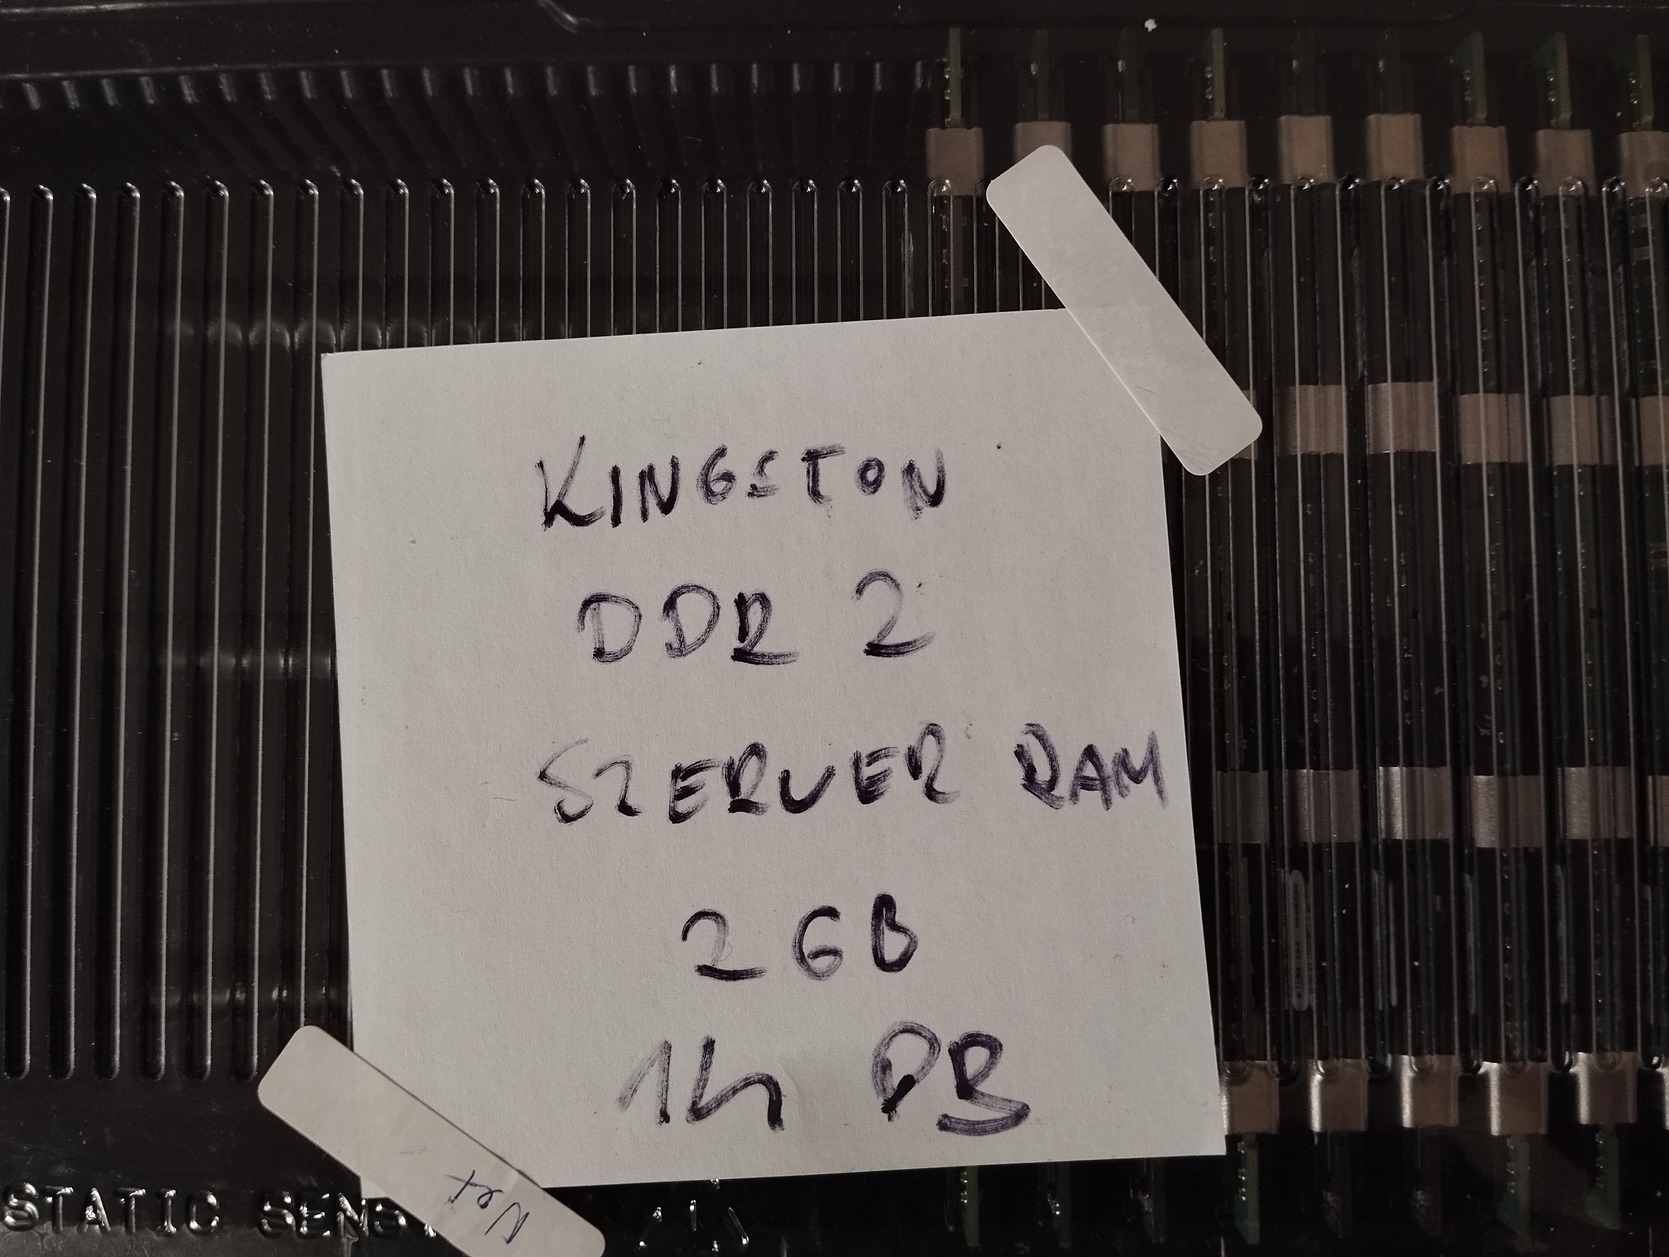 KINGSTON
DDR 2
SZERVER RAM
2 GB
14 DB
STATIC SENS